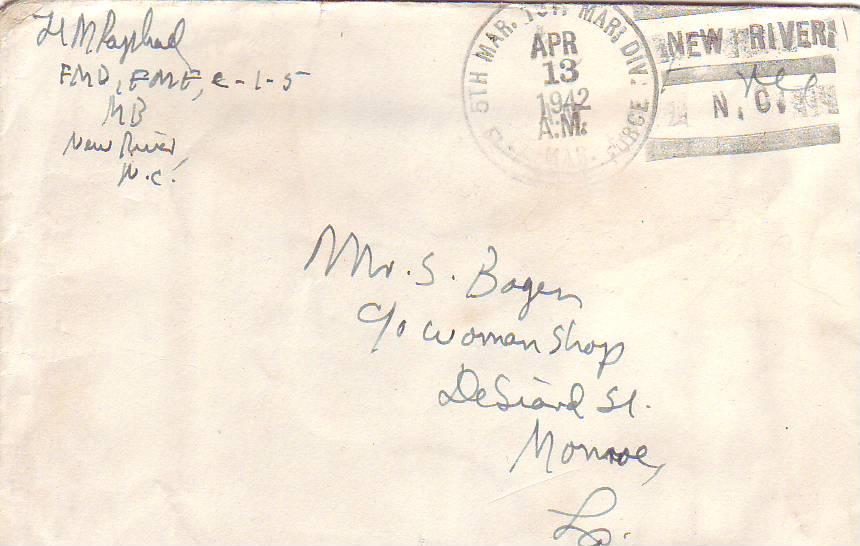 H M Raphael
FMD, FMF, C-1-5
MB
New River,
N.C.
5TH MAR. 1ST MAR. DIV.
MAR. FORCE
APR
13
1942
A.M.
NEW RIVER
N. C.
Mr. S. Bogen
c/o Woman Shop
DeSiard St.
Monroe,
La.